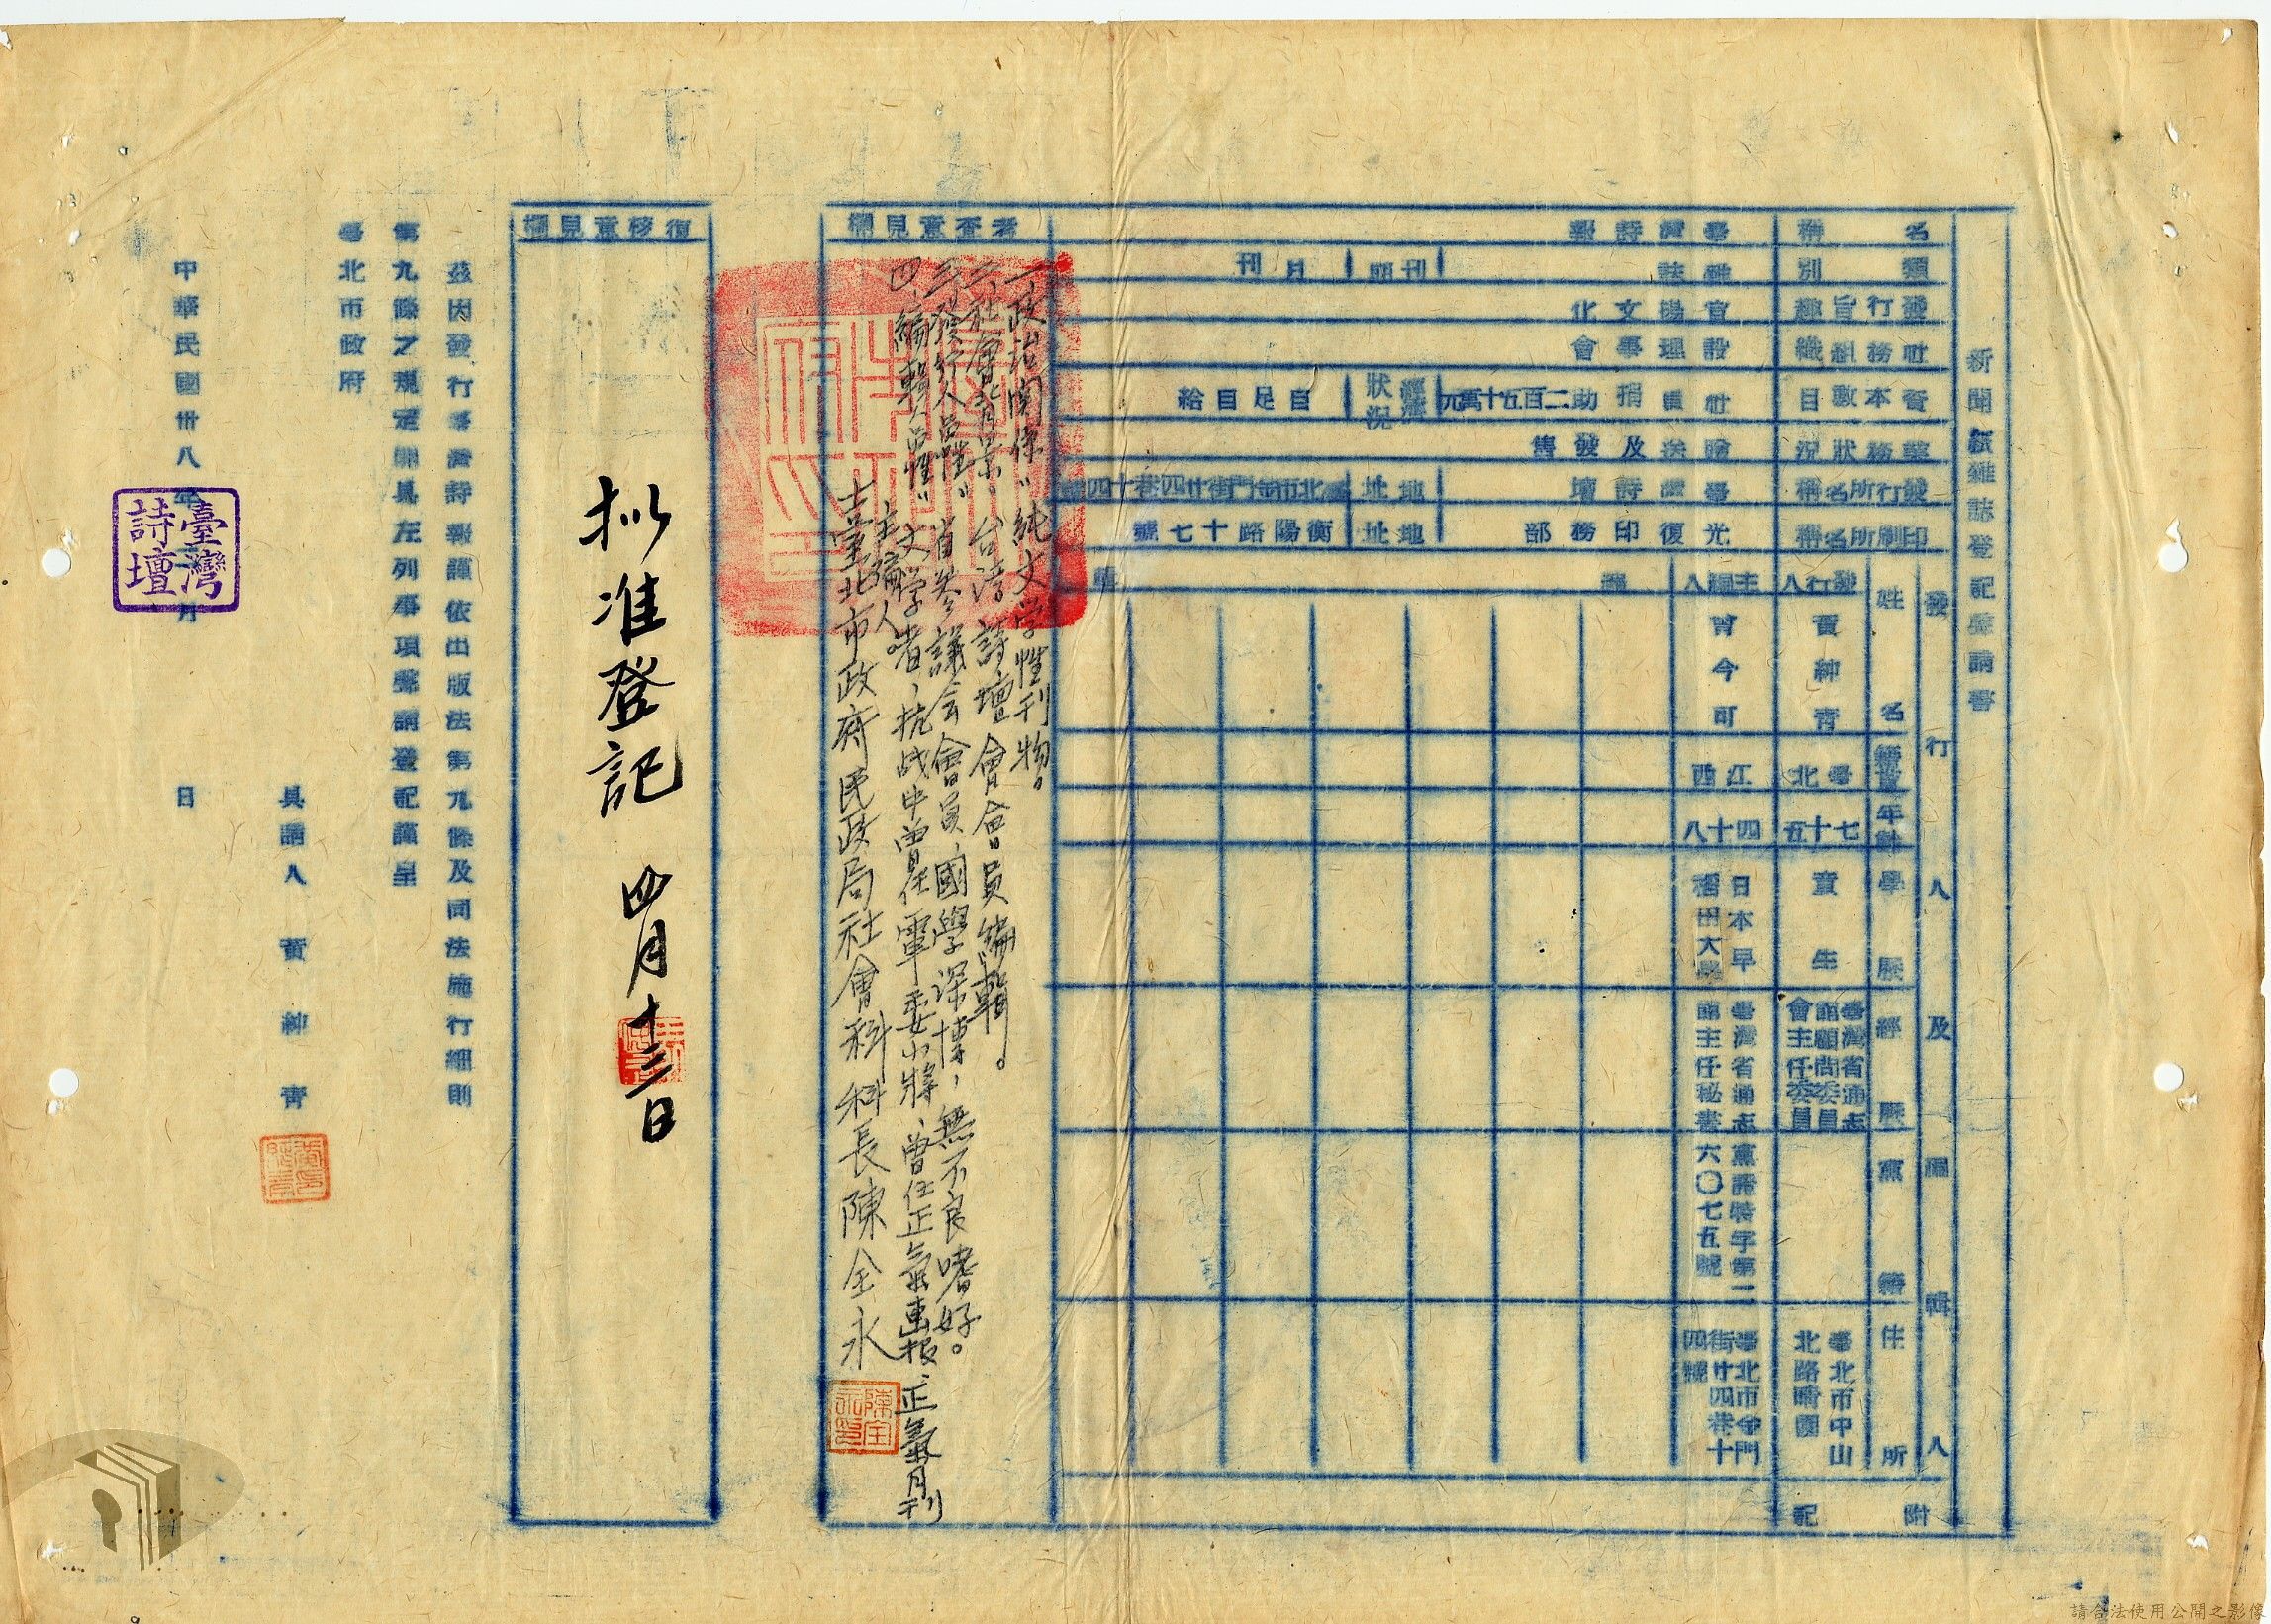 新聞紙雜誌登記聲請書
名稱 臺灣詩報
類別 雜誌 刊期 月刊
發行旨趣 宣揚文化
社務組織 設理事會
資本數目 社員捐助二百五十萬元 經濟狀況 自足自給
業務狀況 贈送及發售
發行所名稱 臺灣詩壇 地址 臺北市金門街廿四巷十四號
印刷所名稱 光復印務部 地址 衡陽路十七號
發行人及編輯人
姓名 籍貫 年齡 學歷 經歷 黨籍 住所
發行人 黃純青 臺北 七十五 童生 臺灣省通志館顧問委員會主任委員 臺北市中山北路晴園
主編人 曾今可 江西 四十八 日本早稻田大學 臺灣省通志館主任秘書 黨證特字第二六〇七五號 臺北市金門街廿四巷十四號
編輯
附記
考查意見欄
一、政治関係"純文学性刊物。
二、社會背景。台湾詩壇會會員編輯。
三、發行人品性"省参議会會員、國學深博,無不良嗜好。
四、編輯人品性"文学者,抗战中曾任軍委少將、曾任正氣畫报、正氣月刊
主編人。
臺北市政府民政局社會科科長陳全永
陳全永印
復核意見欄
拟准登記 四月十三日
茲因發行臺灣詩報謹依出版法第九條及同法施行細則
第九條之規定開具左列事項聲請登記謹呈
臺北市政府
具請人 黃純青
中華民國卅八年 月 日
臺灣詩壇
請合法使用公開之影像